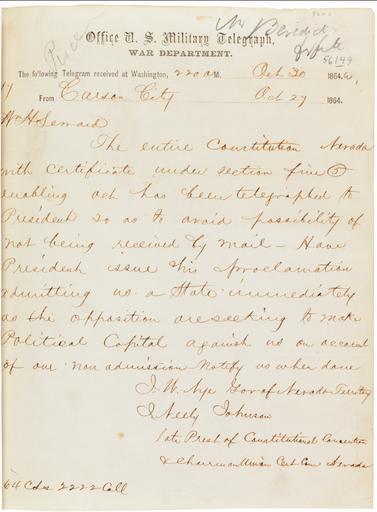 Mr Benedict
56149
Office U. S. Military Telegraph,
WAR DEPARTMENT.
The following Telegram received at Washington, 220 a M. Oct 30 1864.
From Carson City Oct 29 1864.
W H Seward
The entire Constitution Nevada
with certificate under section five (5)
enabling act has been telegraphed to
President so as to avoid possibility of
not being received by mail – Have
President issue his proclamation
admitting us a State immediately
as the opposition are seeking to make
Political Capital against us on account
of our non admission Notify us when done
J. W. Nye Gov of Nevada Territory
J Neely Johnson
late Prest of Constitutional Convention
& Chairman Union Cent Com Nevada